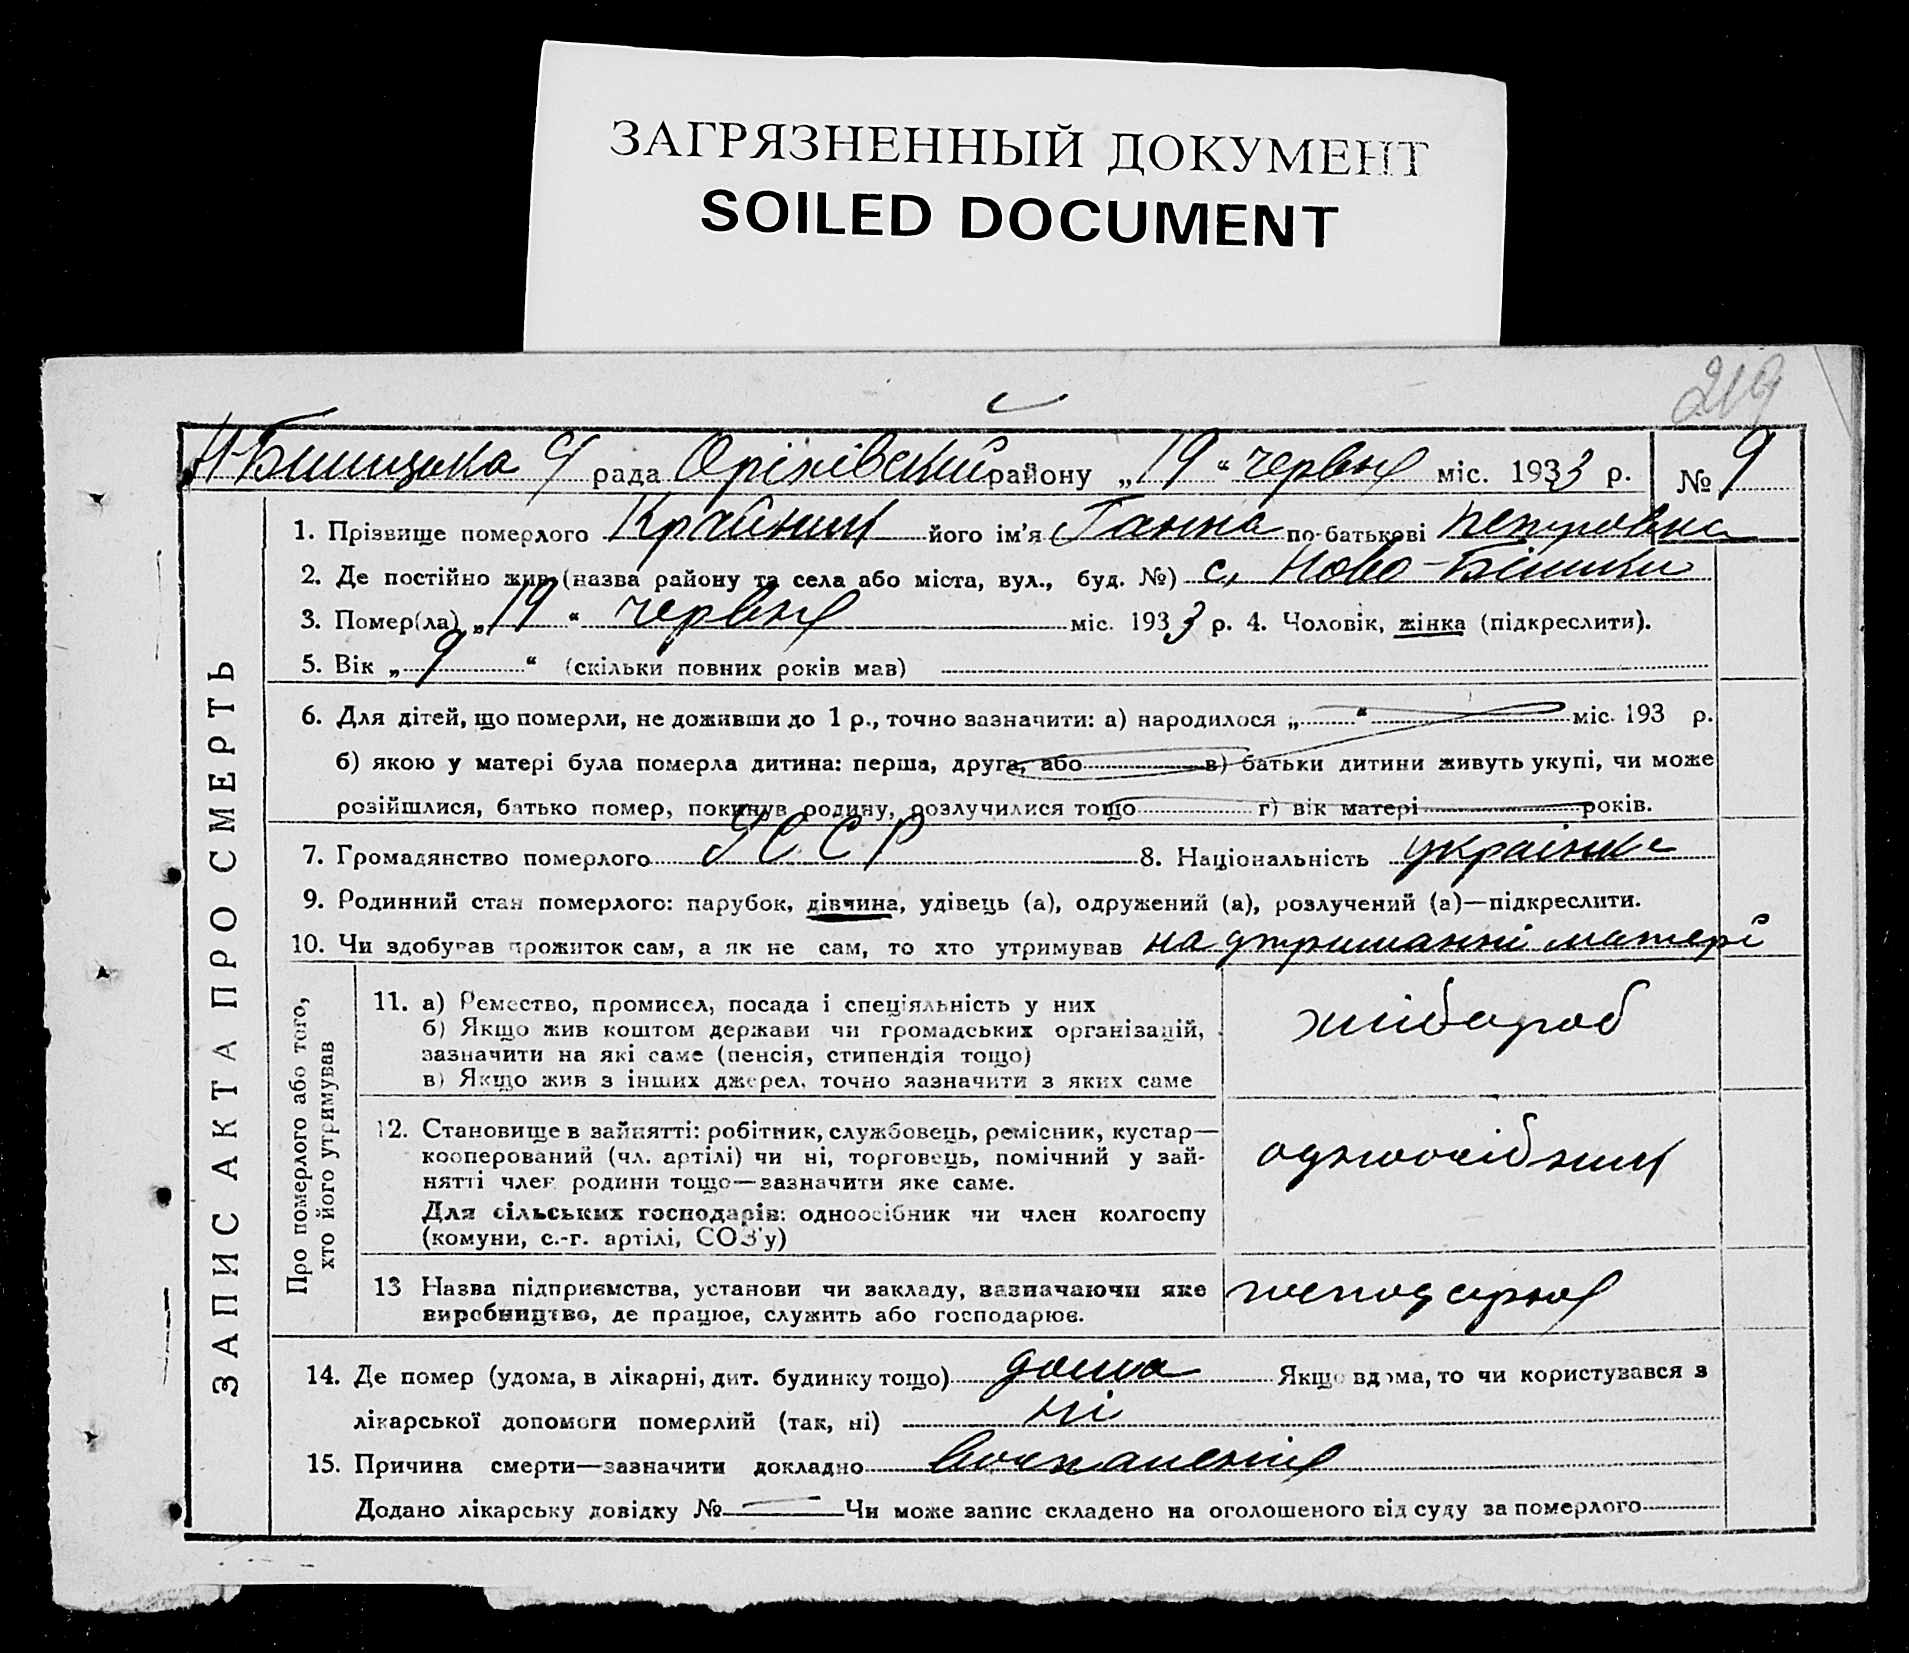 ЗАГРЯЗНЕННЫЙ ДОКУМЕНТ
SOILED DOCUMENT
219
с/ рада Оріхівський району „ 19 “ червня міс. 1933 р. № 9
ЗАПИС АКТА ПРО СМЕРТЬ
1. Прізвище померлого його ім'я Ганна по-батькові Петровна
2. Де постійно жив (назва району та села або міста, вул., буд. №) с. Ново-
3. Помер(ла) „ 19 “ червня міс. 1933 р. 4. Чоловік, жінка (підкреслити).
5. Вік „ 9 “ (скільки повних років мав)
6. Для дітей, що померли, не доживши до 1 р., точно зазначити: а) народилося „ “ міс. 193 р.
б) якою у матері була померла дитина: перша, друга, або в) батьки дитини живуть укупі, чи може
розійшлися, батько помер, покинув родину, розлучилися тощо г) вік матері років.
7. Громадянство померлого УССР 8. Національність українка
9. Родинний стан померлого: парубок, дівчина, удівець (а), одружений (а), розлучений (а)—підкреслити.
10. Чи здобував прожиток сам, а як не сам, то хто утримував на утриманні матері
Про померлого або того,
хто його утримував
11. а) Ремество, промисел, посада і спеціяльність у них
б) Якщо жив коштом держави чи громадських організацій,
зазначити на які саме (пенсія, стипендія тощо)
в) Якщо жив з інших джерел, точно зазначити з яких саме
хлібороб
12. Становище в зайнятті: робітник, службовець, ремісник, кустар—
кооперований (чл. артілі) чи ні, торговець, помічний у зай-
нятті член родини тощо—зазначити яке саме.
Для сільських господарів: одноосібник чи член колгоспу
(комуни, с.-г. артілі, СОЗ'у)
одноосібник
13 Назва підприємства, установи чи закладу, зазначаючи яке
виробництво, де працює, служить або господарює.
14. Де помер (удома, в лікарні, дит. будинку тощо) дома Якщо вдома, то чи користувався з
лікарської допомоги померлий (так, ні) ні
15. Причина смерти—зазначити докладно воспаленія
Додано лікарську довідку № — Чи може запис складено на оголошеного від суду за померлого